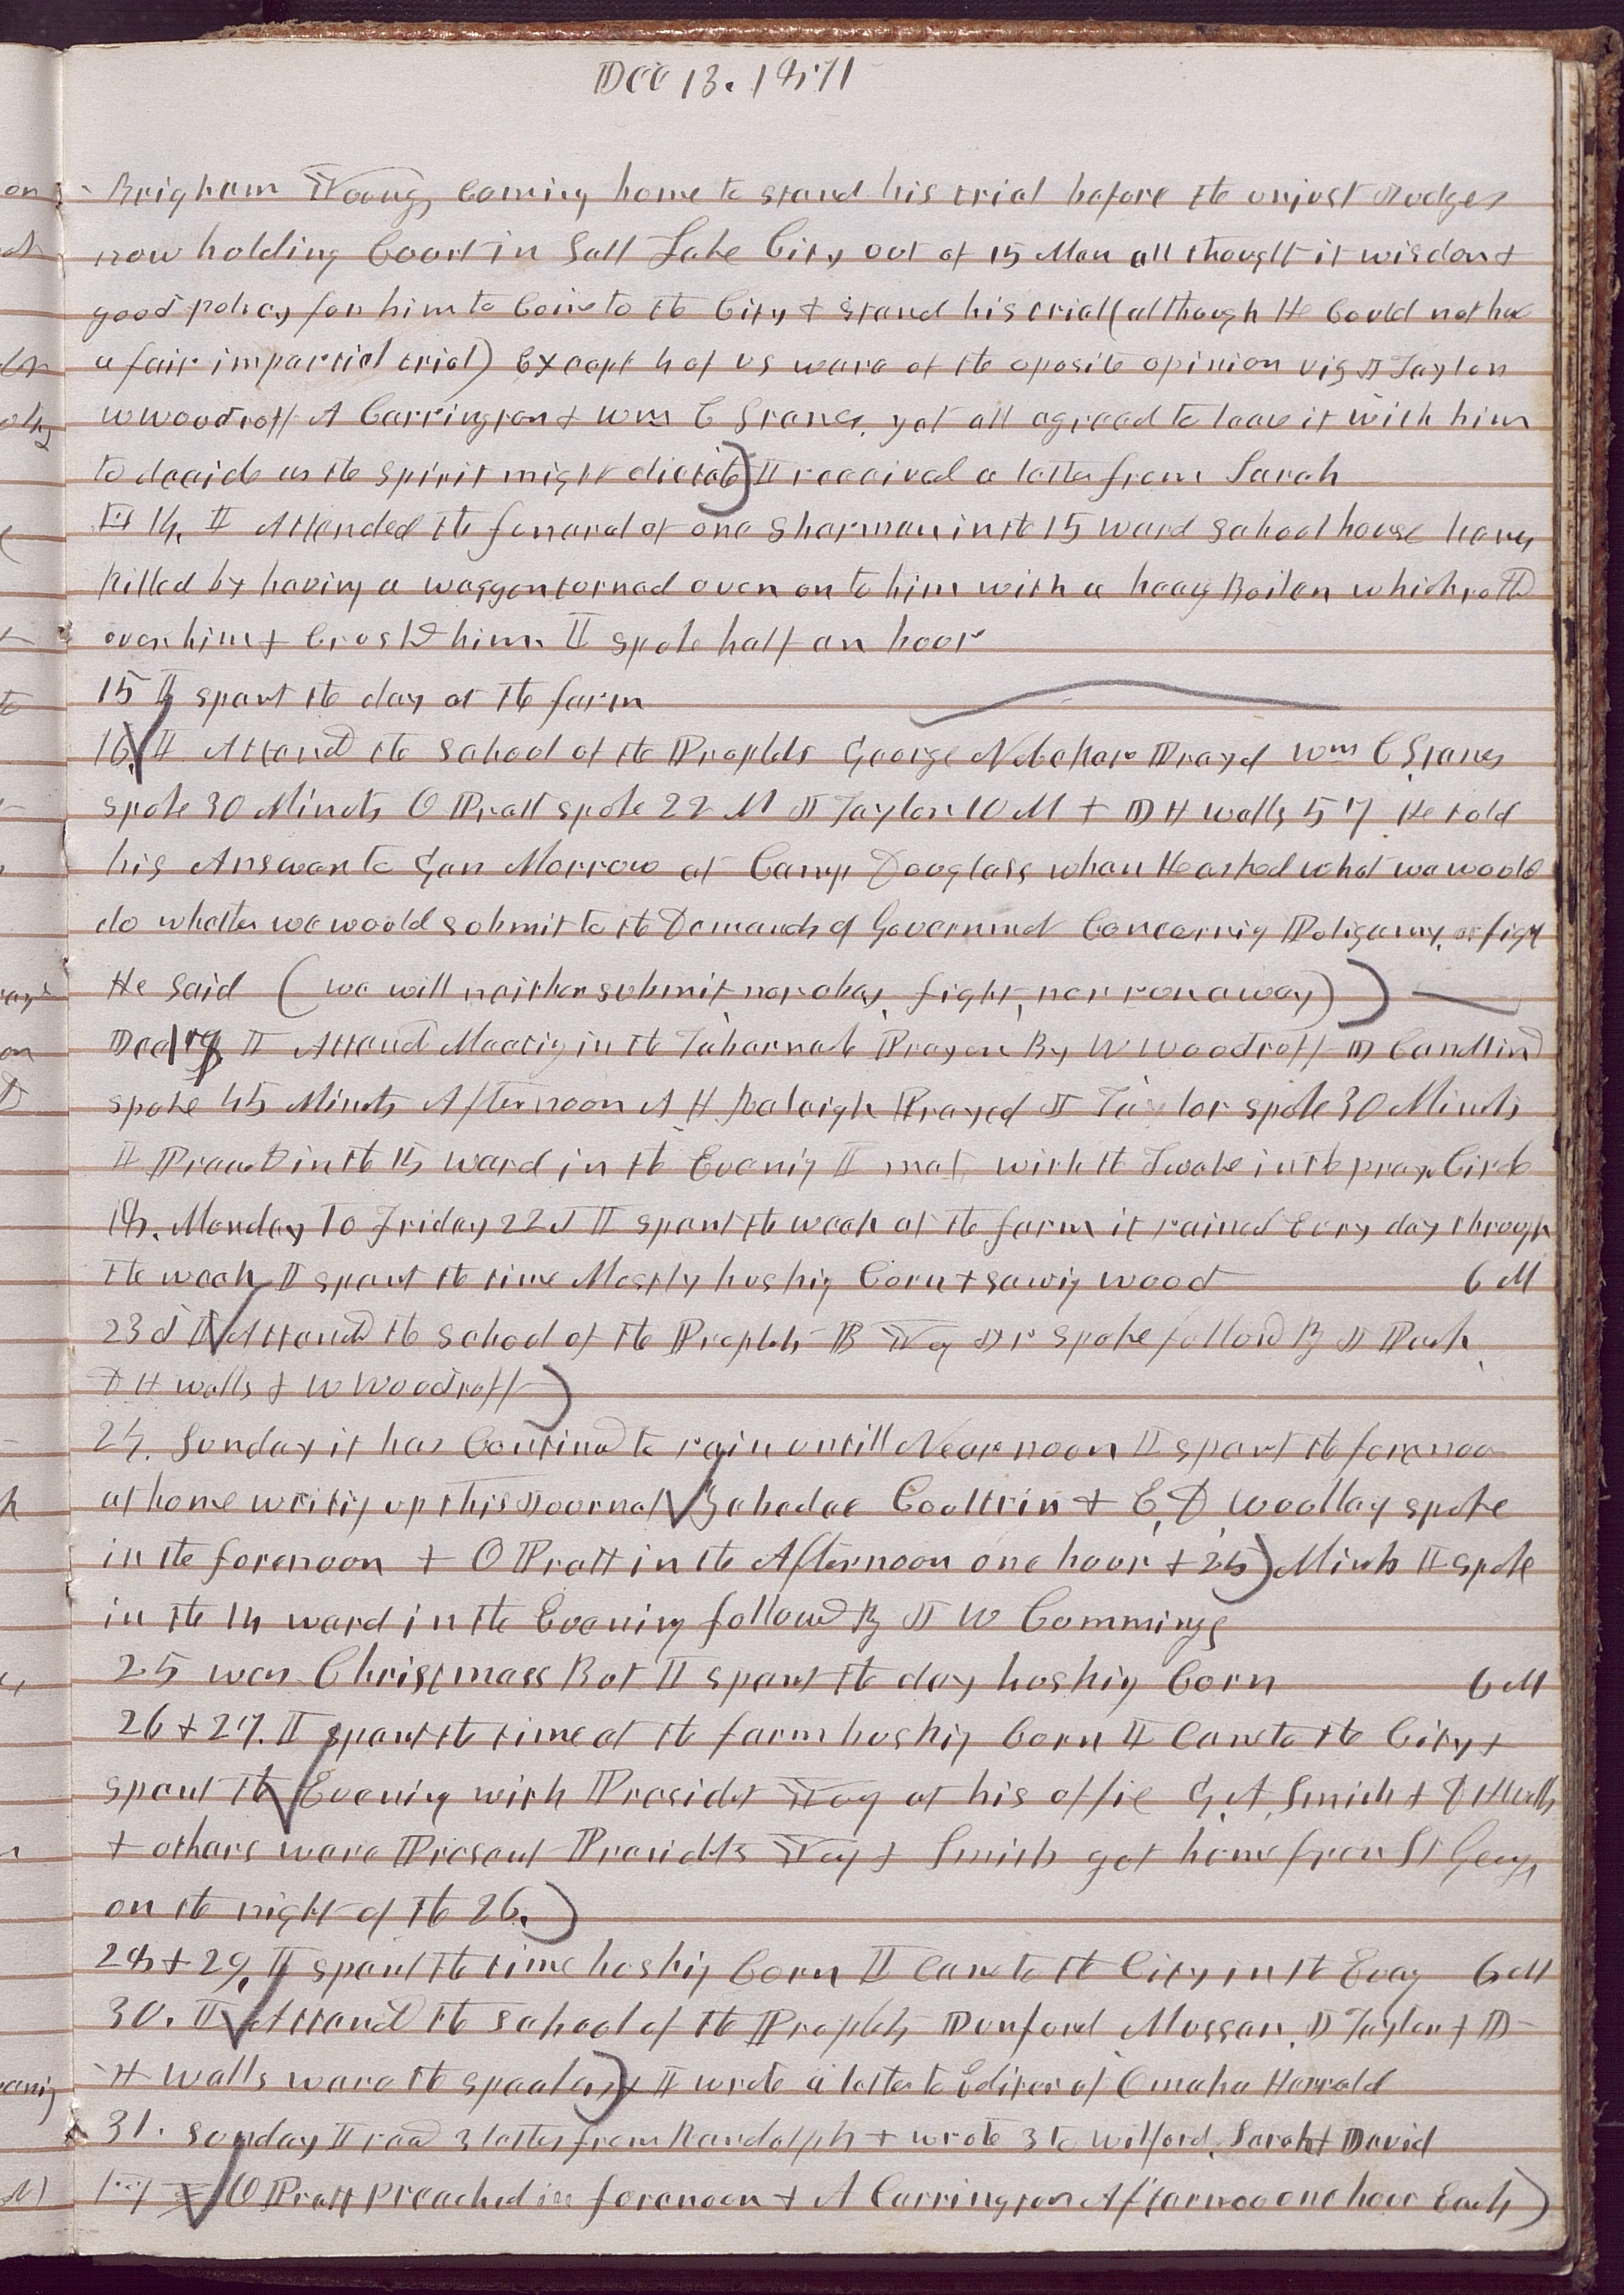 Dec 13. 1871
Brigham Young, Coming home to stand his trial before the unjust Judges
now holding Court in Salt Lake City out of 15 Men all thought it wisdom &
good policy for him to Come to the City & stand his trial (although He Could not have
a fair impartial trial) Except 4 of us ware of the oposite opinion viz J Taylor
W Woodruff A Carrington & Wm C Stanes, yet all agreed to leave it with him
to decide as the spirit might dictate) I received a letter from Sarah
14. I Attended the funeral of one Sharman in the 15 ward school house
killed by having a waggon turned over on to him with a heavy Boiler which rolled
over him & Crushed him. I spoke half an hour
15 I spent the day at the farm
16. I Attend the School of the Prophets George Nebeker Prayed Wm C Stanes
spoke 30 Minuts O Pratt spoke 22 M J Taylor 10 M & D H Wells 57 He told
his Answer to Gen Morrow at Camp Douglass when He asked what we would
do whether we would submit to the Demands of Government Concerning Poligamy, or fight
He said (we will neither submit, nor obey, fight, nor run away))
Dec 17 I Attend Meeting in the Tabernacle Prayer By W Woodruff D Candland
spoke 45 Minuts Afternoon A H Raleigh Prayed J Taylor spoke 30 Minuts
I Preached in the 15 ward in the Evening I met with the Twelve in the prayer Circle
18. Monday To Friday 22d I spent the week at the farm it rained Evry day through
the week I spent the time Mostly husking Corn & sawing wood 6 M
23d I Attend the school of the Prophets B Yg Jr spoke followd By J Pack
D H Wells & W Woodruff)
24. Sunday it has Continued to rain untill Near noon I spent the forenoon
at home writing up this Journal Zebedee Cooltrin & E, D, Woolley spoke
in the forenoon & O Pratt in the Afternoon one hour & 25) Minuts I spoke
in the 14 ward in the Evening followed By J W Cummings
25 was Christmass But I spent the day husking Corn 6 M
26 & 27. I spent the time at the farm husking Corn I Came to the City &
spent the Evening with Presidet Yog at his office G. A. Smith & D H Wells
& others ware Present Presidets Yog & Smith got home from St George
on the night of the 26.)
28 & 29, I spent the time husking Corn I Came to the City, in the Eveng 6 M
30. I Attend the school of the Prophets Dunford Musser. J Taylor & D
H Wells ware the speakers) & I wrote a letter to Editor of Omaha Herrald
31. Sunday I recd 3 letters from Randolph & wrote 3 to Wilford, Sarah & David
O Pratt preached in forenoon & A Carrington Afternoon one hour Each)